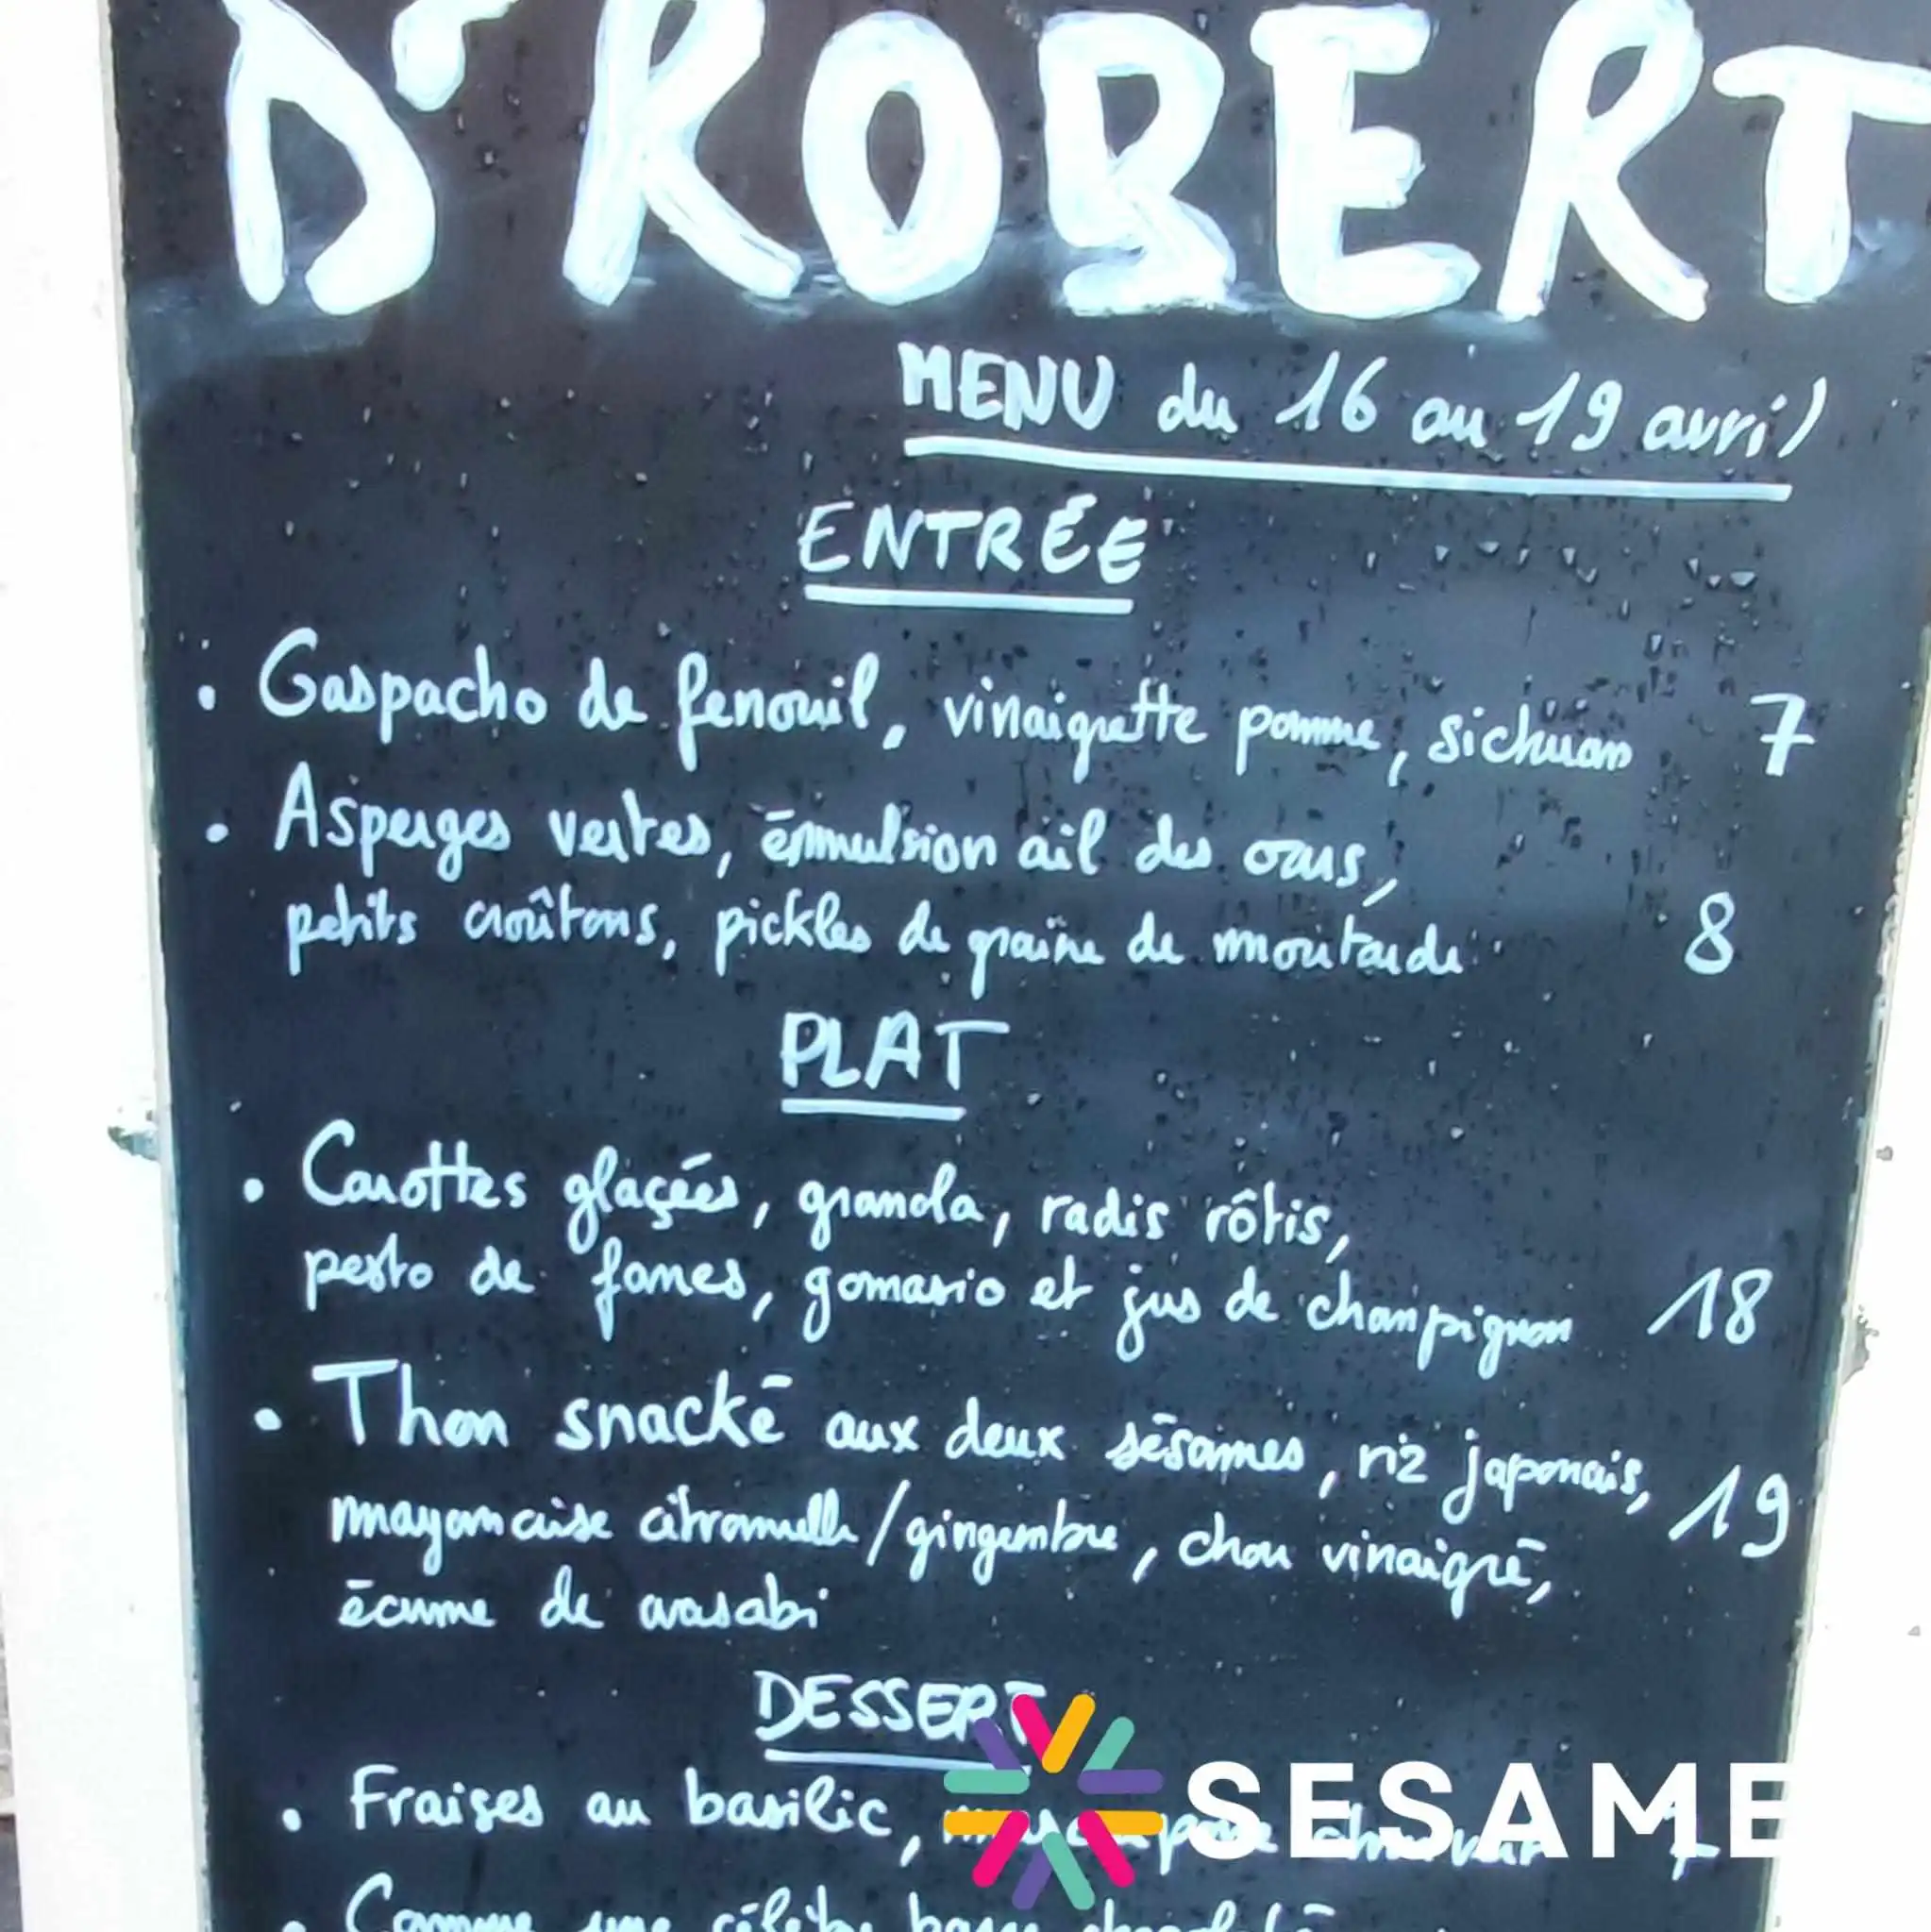 Dr ROBERT
MENU du 16 au 19 avril
ENTRÉE
• Gaspacho de fenouil, vinaigrette pomme, sichuan 7
• Asperges vertes, émmulsion ail des ours,
petits croûtons, pickles de graine de moutarde 8
PLAT
• Carottes glaçées, granola, radis rôtis,
pesto de fanes, gomasio et jus de champignon 18
• Thon snacké aux deux sésames, riz japonais, 19
mayonnaise citronnelle/gingembre, chou vinaigré,
écume de wasabi
DESSERT
• Fraises au basilic, 7
SESAME
• Comme une célèbre barre